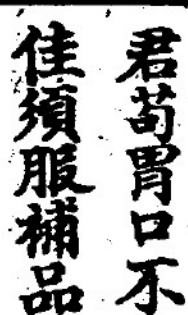 君苟胃口不
佳須服補品